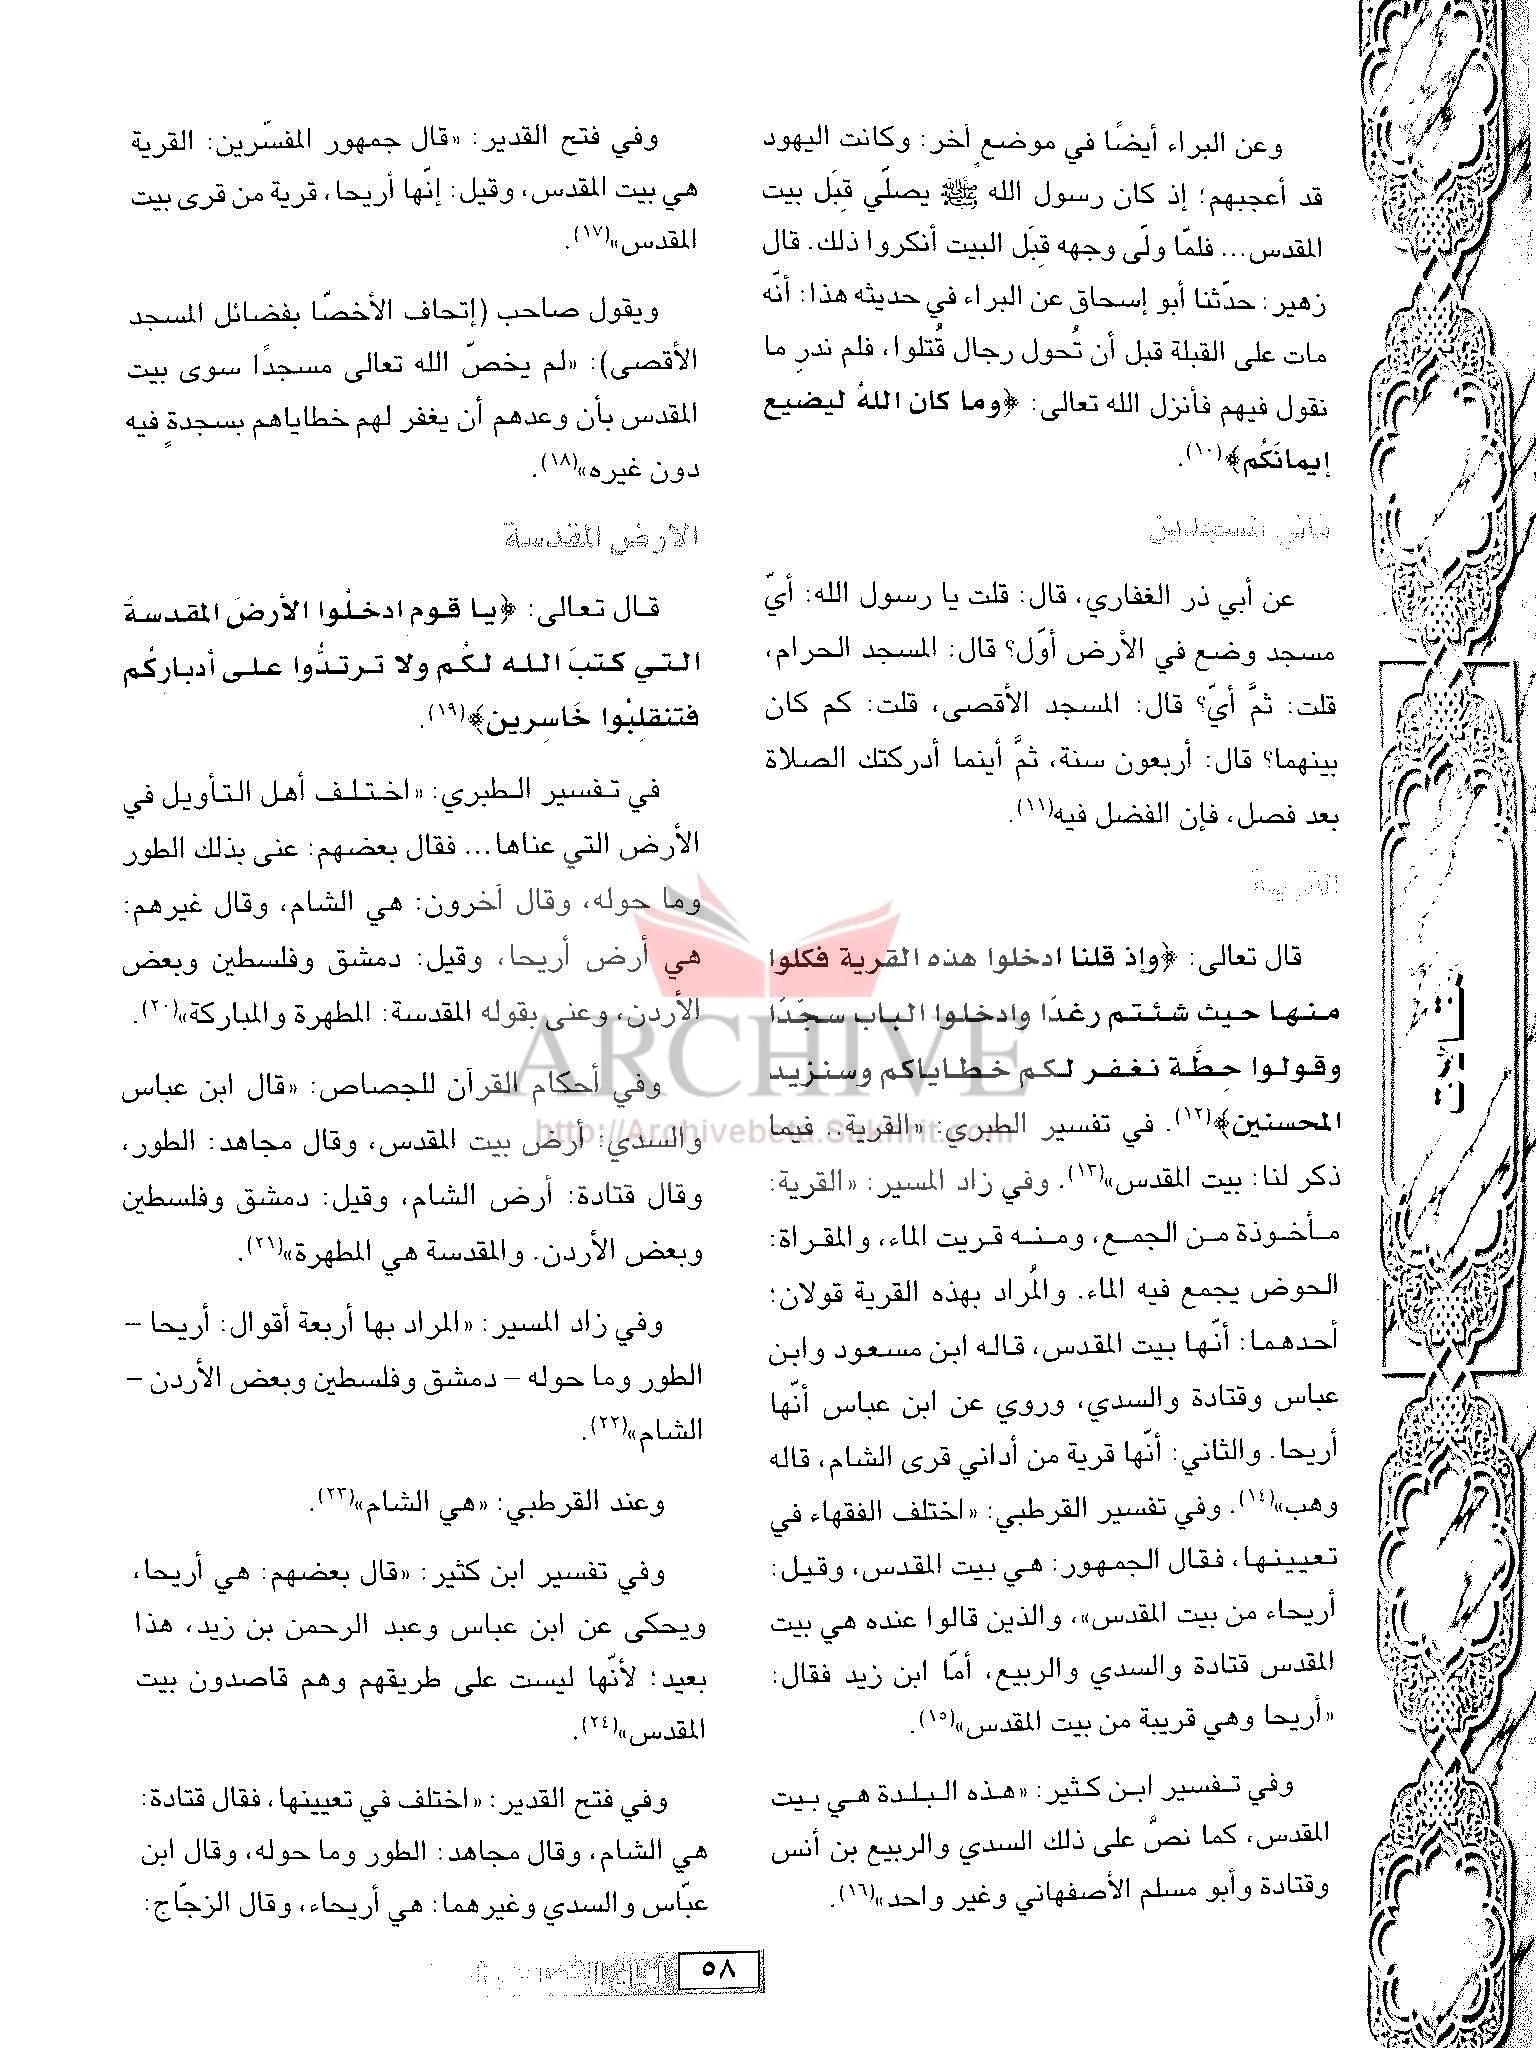 وعن البراء أيضًا في موضعٍ آخر: وكانت اليهود
قد أعجبهم؛ إذ كان رسول الله ﷺ يصلّي قِبَل بيت
المقدس... فلمّا ولّى وجهه قِبَل البيت أنكروا ذلك. قال
زهير: حدّثنا أبو إسحاق عن البراء في حديثه هذا: أنّه
مات على القبلة قبل أن تُحول رجال قُتلوا، فلم ندرِ ما
نقول فيهم فأنزل الله تعالى: ﴿وما كان اللهُ ليضيع
إيمانَكُم﴾(١٠).
ثاني المسجدين
عن أبي ذر الغفاري، قال: قلت يا رسول الله: أيّ
مسجد وضع في الأرض أوّل؟ قال: المسجد الحرام،
قلت: ثمَّ أيّ؟ قال: المسجد الأقصى، قلت: كم كان
بينهما؟ قال: أربعون سنة، ثمَّ أينما أدركتك الصلاة
بعد فصل، فإن الفضل فيه(١١).
القرية
قال تعالى: ﴿وإذ قلنا ادخلوا هذه القرية فكلوا
منها حيث شئتم رغدًا وادخلوا الباب سجّدًا
وقولوا حِطَّة نغفر لكم خطاياكم وسنزيد
المحسنين﴾(١٢). في تفسير الطبري: «القرية.. فيما
ذكر لنا: بيت المقدس»(١٣). وفي زاد المسير: «القرية:
مأخوذة من الجمع، ومنه قريت الماء، والمقراة:
الحوض يجمع فيه الماء. والمُراد بهذه القرية قولان؛
أحدهما: أنّها بيت المقدس، قاله ابن مسعود وابن
عباس وقتادة والسدي، وروي عن ابن عباس أنّها
أريحا. والثاني: أنّها قرية من أداني قرى الشام، قاله
وهب»(١٤). وفي تفسير القرطبي: «اختلف الفقهاء في
تعيينها، فقال الجمهور: هي بيت المقدس، وقيل:
أريحاء من بيت المقدس»، والذين قالوا عنده هي بيت
المقدس قتادة والسدي والربيع، أمّا ابن زيد فقال:
«أريحا وهي قريبة من بيت المقدس»(١٥).
وفي تفسير ابن كثير: «هذه البلدة هي بيت
المقدس، كما نصَّ على ذلك السدي والربيع بن أنس
وقتادة وأبو مسلم الأصفهاني وغير واحد»(١٦).
وفي فتح القدير: «قال جمهور المفسّرين: القرية
هي بيت المقدس، وقيل: إنّها أريحا، قرية من قرى بيت
المقدس»(١٧).
ويقول صاحب (إتحاف الأخصّا بفضائل المسجد
الأقصى): «لم يخصّ الله تعالى مسجدًا سوى بيت
المقدس بأن وعدهم أن يغفر لهم خطاياهم بسجدةٍ فيه
دون غيره»(١٨).
الأرض المقدسة
قال تعالى: ﴿يا قوم ادخلُوا الأرضَ المقدسةَ
التي كتبَ الله لكُم ولا ترتدُّوا على أدباركُم
فتنقلِبُوا خَاسِرين﴾(١٩).
في تفسير الطبري: «اختلف أهل التأويل في
الأرض التي عناها... فقال بعضهم: عنى بذلك الطور
وما حوله، وقال آخرون: هي الشام، وقال غيرهم:
هي أرض أريحا، وقيل: دمشق وفلسطين وبعض
الأردن، وعنى بقوله المقدسة: المطهرة والمباركة»(٢٠).
وفي أحكام القرآن للجصاص: «قال ابن عباس
والسدي: أرض بيت المقدس، وقال مجاهد: الطور،
وقال قتادة: أرض الشام، وقيل: دمشق وفلسطين
وبعض الأردن. والمقدسة هي المطهرة»(٢١).
وفي زاد المسير: «المراد بها أربعة أقوال: أريحا –
الطور وما حوله – دمشق وفلسطين وبعض الأردن –
الشام»(٢٢).
وعند القرطبي: «هي الشام»(٢٣).
وفي تفسير ابن كثير: «قال بعضهم: هي أريحا،
ويحكى عن ابن عباس وعبد الرحمن بن زيد، هذا
بعيد؛ لأنّها ليست على طريقهم وهم قاصدون بيت
المقدس»(٢٤).
وفي فتح القدير: «اختلف في تعيينها، فقال قتادة:
هي الشام، وقال مجاهد: الطور وما حوله، وقال ابن
عبّاس والسدي وغيرهما: هي أريحاء، وقال الزجّاج:
ARCHIVE
http://Archivebeta.Sakhrit.com
٥٨